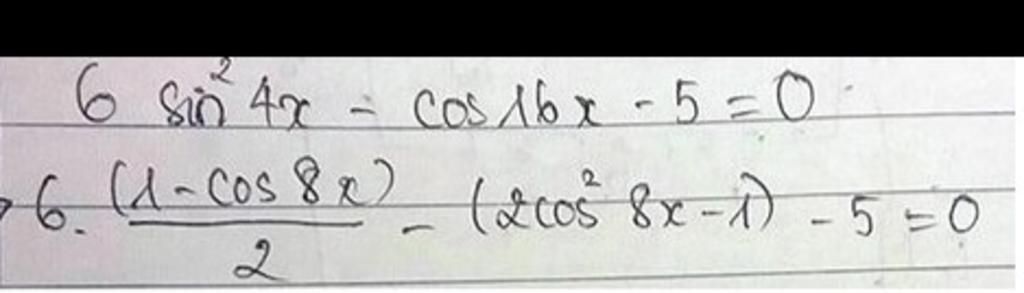 6 sin² 4x - cos 16x - 5 = 0
6. (1 - cos 8x)/2 - (2cos² 8x - 1) - 5 = 0